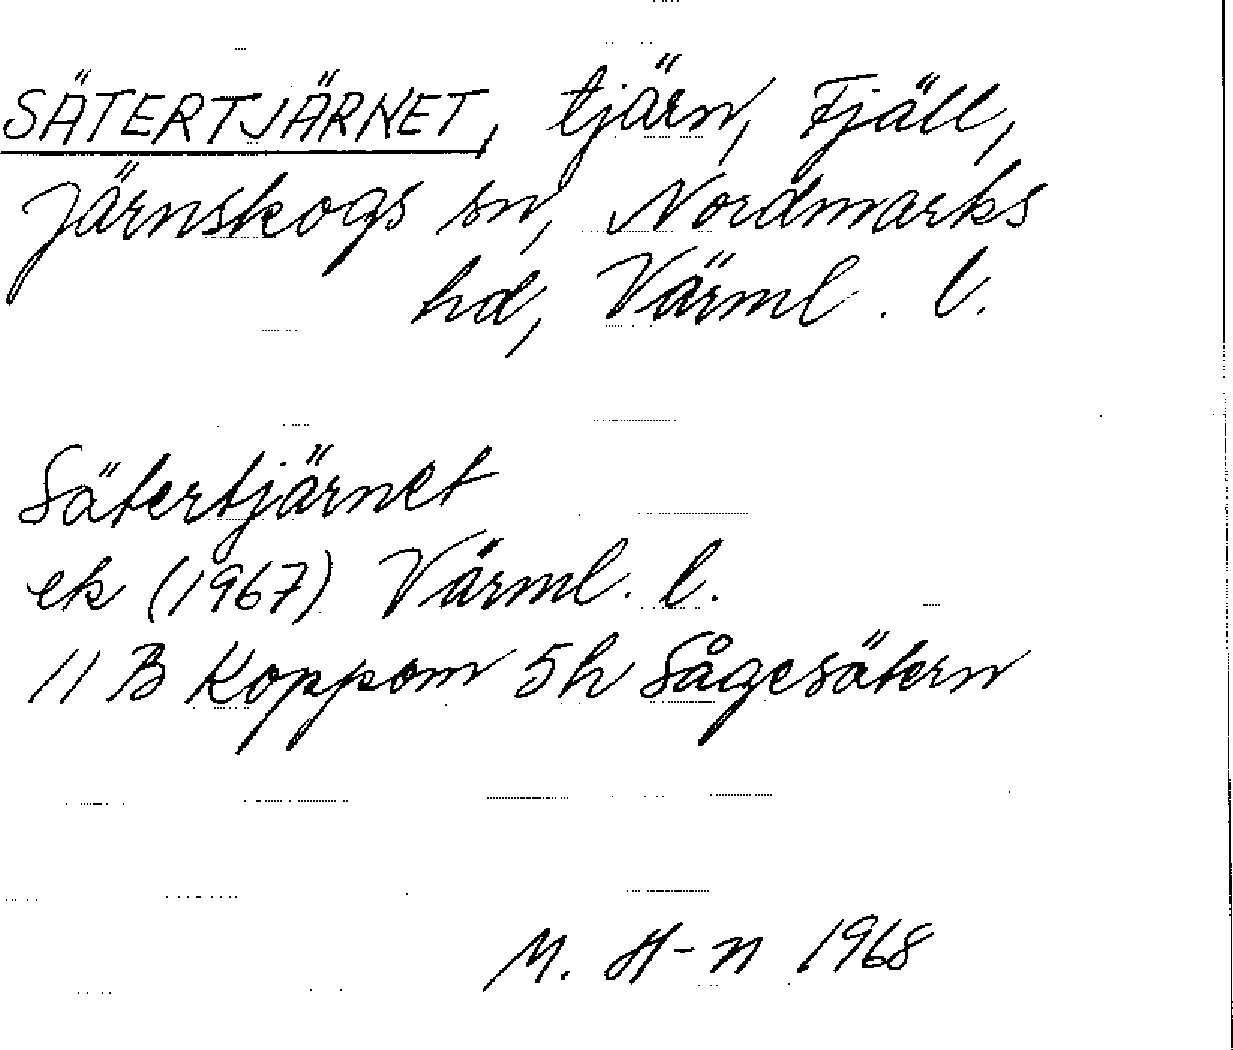 SÄTERTJÄRNET, tjärn, Fjäll,
Järnskogs sn, Nordmarks
hd, Värml. l.
Sätertjärnet
ek (1967) Värml. l.
11 B Koppom 5h Sågesätern
M. H-n 1968